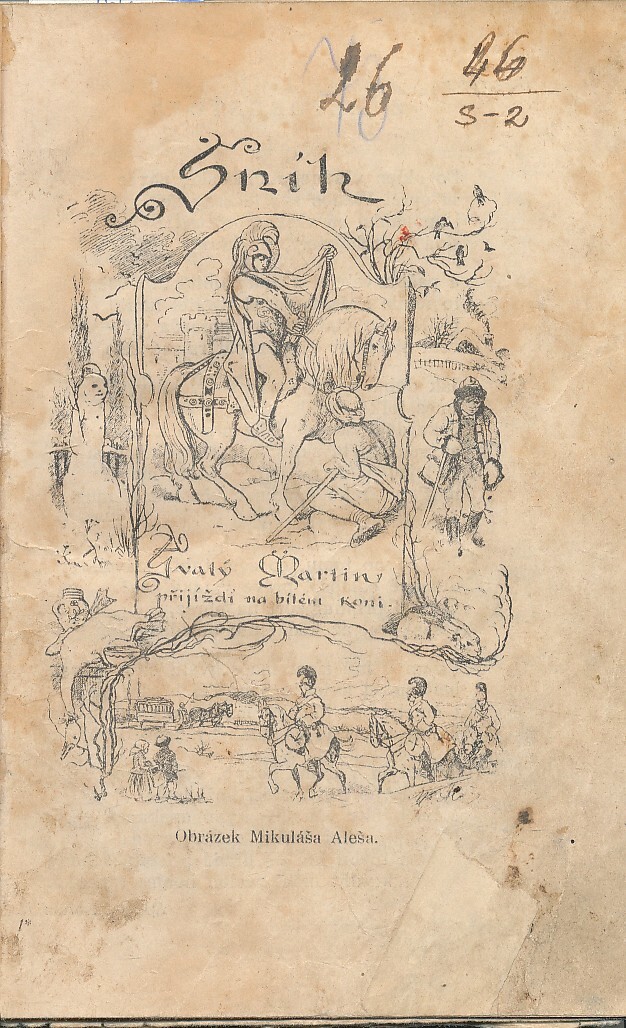 26
46
S-2
Sníh
Svatý Martin
přijíždí na bílém koni.
Obrázek Mikuláša Aleša.